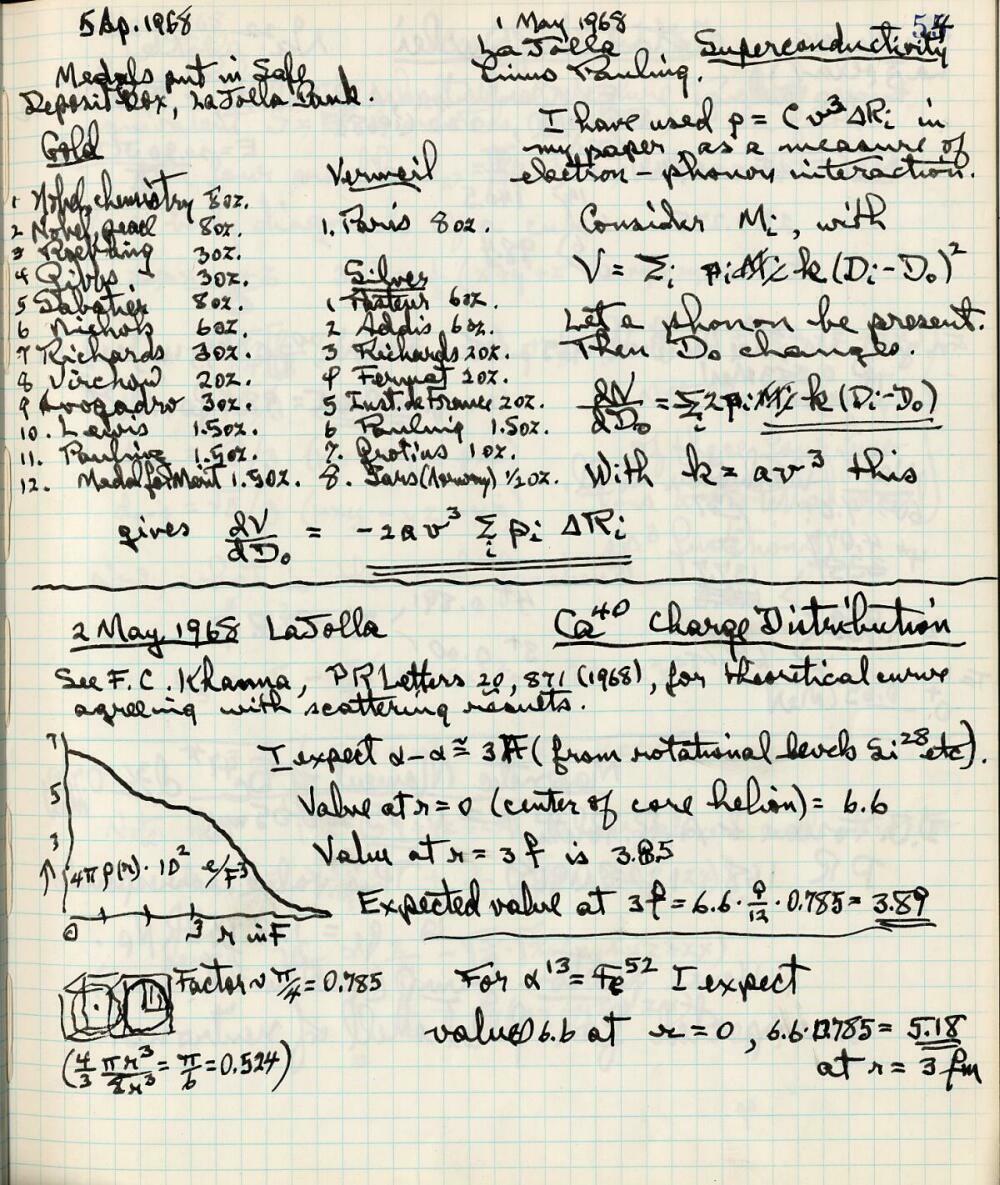 5 Ap. 1968
Medals put in Safe
Deposit Box, La Jolla Bank.
Gold
1 Nobel, chemistry 8oz.
2 Nobel, peace 8oz.
3 Roebling 3oz.
4 Gibbs. 3oz.
5 Sabatier 8oz.
6 Nichols 6oz.
7 Richards 3oz.
8 Virchow 2oz.
9 Avogadro 3oz.
10. Lewis 1.5oz.
11. Pauling 1.5oz.
12. Medal for Merit 1.5oz.
Vermeil
1. Paris 8oz.
Silver
1 Pasteur 6oz.
2 Addis 6oz.
3 Richards 2oz.
4 Fermat 2oz.
5 Inst. de France 2oz.
6 Pauling 1.5oz.
7. Protius 1oz.
8. Tars (Norway) 1/2oz.
1 May 1968 54
La Jolla Superconductivity
Linus Pauling.
I have used ρ = C v³ ΔRi in
my paper, as a measure of
electron-phonon interaction.
Consider Mi, with
V = Σi pi k (Di-Do)²
Let a phonon be present.
Then Do changes.
dV/dDo = Σi 2pi k (Di-Do)
With k = av³ this
gives dV/dDo = -2av³ Σi pi ΔRi
2 May 1968 La Jolla Ca⁴⁰ Charge Distribution
See F.C. Khanna, PR Letters 20, 871 (1968), for theoretical curve
agreeing with scattering results.
I expect α-α ≅ 3F (from rotational levels Si²⁸ etc).
Value at r = 0 (center of core helion) = 6.6
Value at r = 3 f is 3.85
Expected value at 3f = 6.6 · 9/12 · 0.785 = 3.89
7
5
3
↑ 4πρ(r)·10² e/F³
0 3 r in F
Factor ~ π/4 = 0.785
(4/3 πr³/8r³ = π/6 = 0.524)
For α¹³ = Fe⁵² I expect
value 6.6 at r = 0, 6.6·0.785 = 5.18
at r = 3 fm